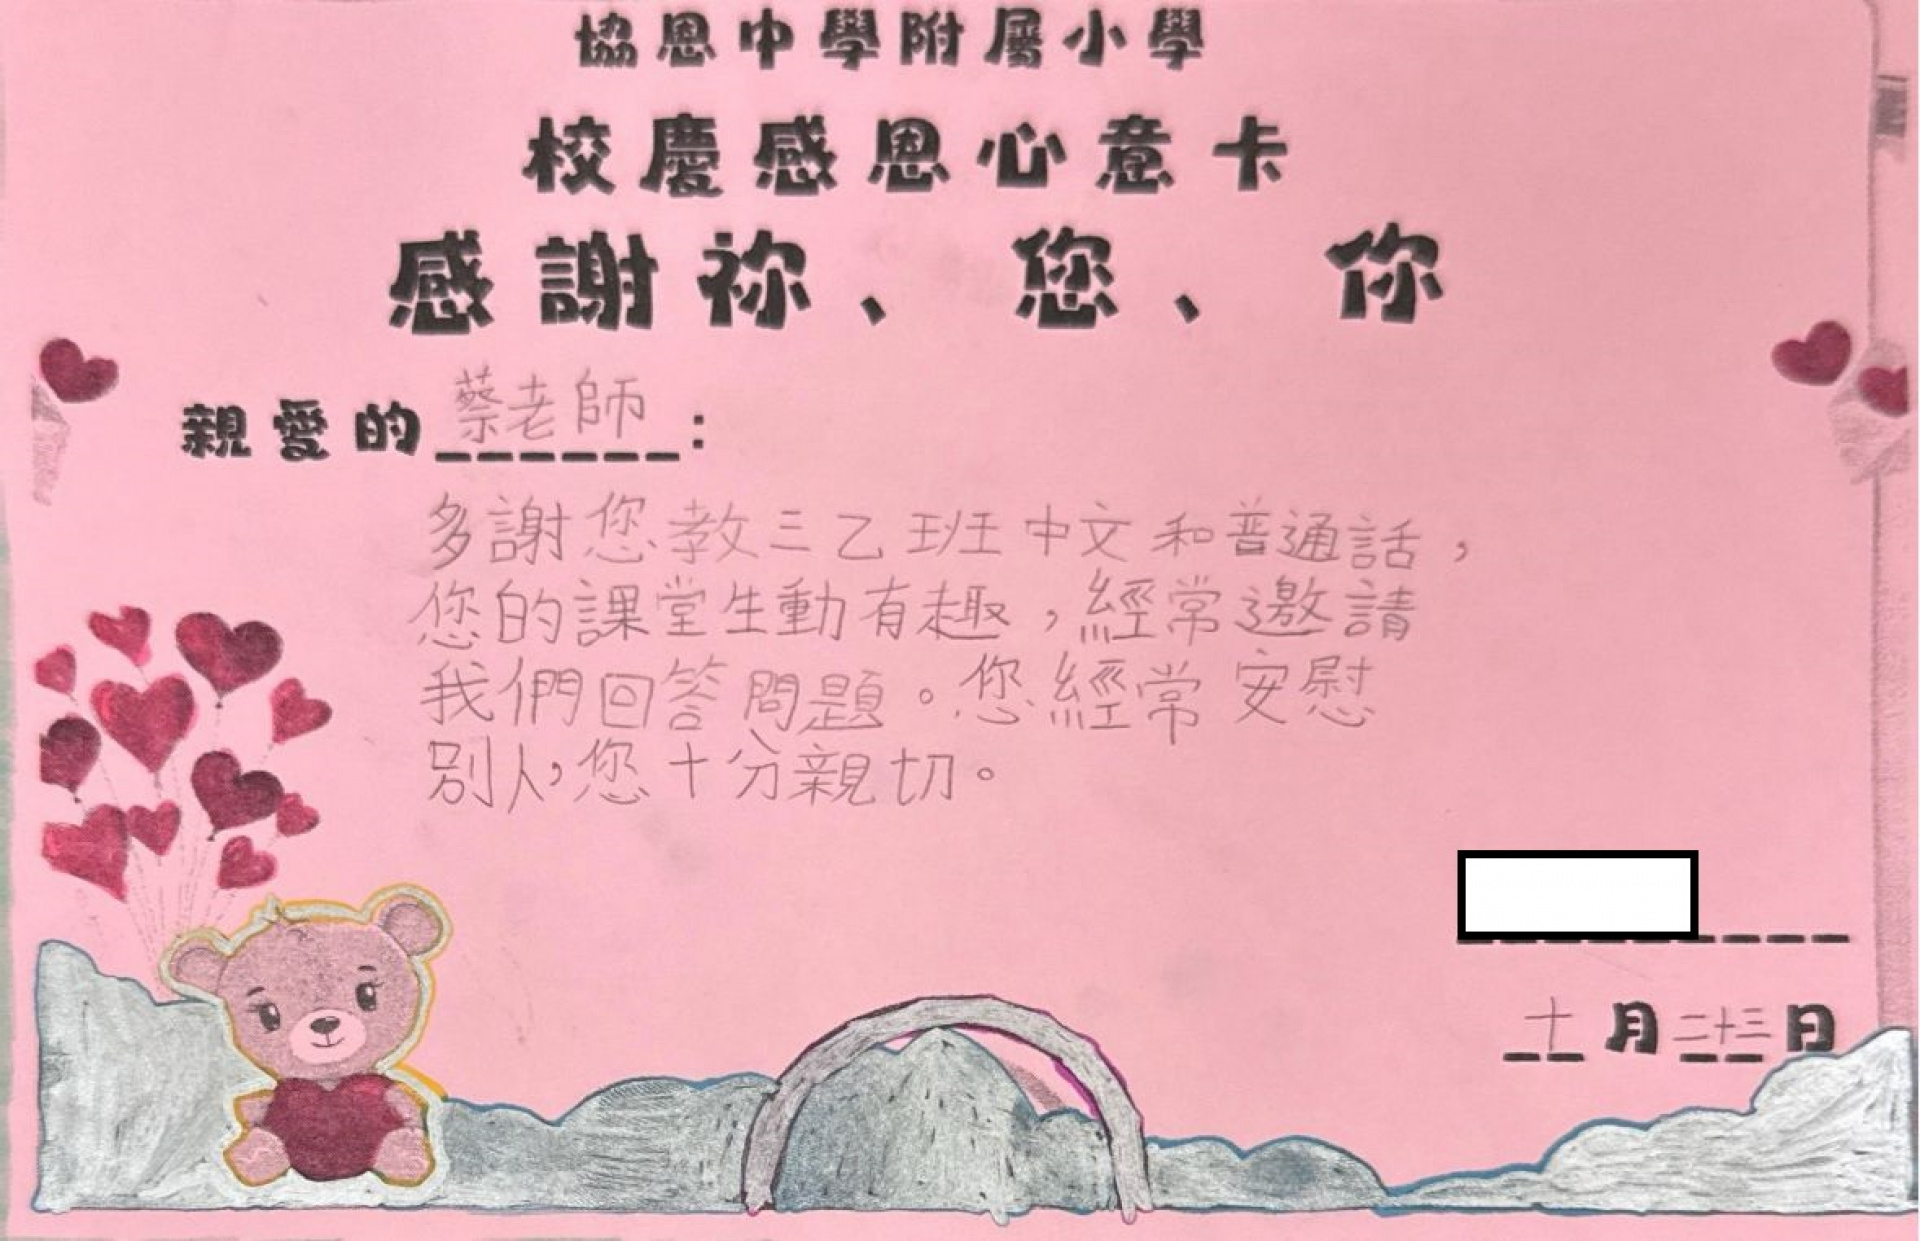 協恩中學附屬小學
校慶感恩心意卡
感謝祢、您、你
親愛的蔡老師：
多謝您教三乙班中文和普通話，
您的課堂生動有趣，經常邀請
我們回答問題。您經常安慰
別人，您十分親切。
十月二十三日